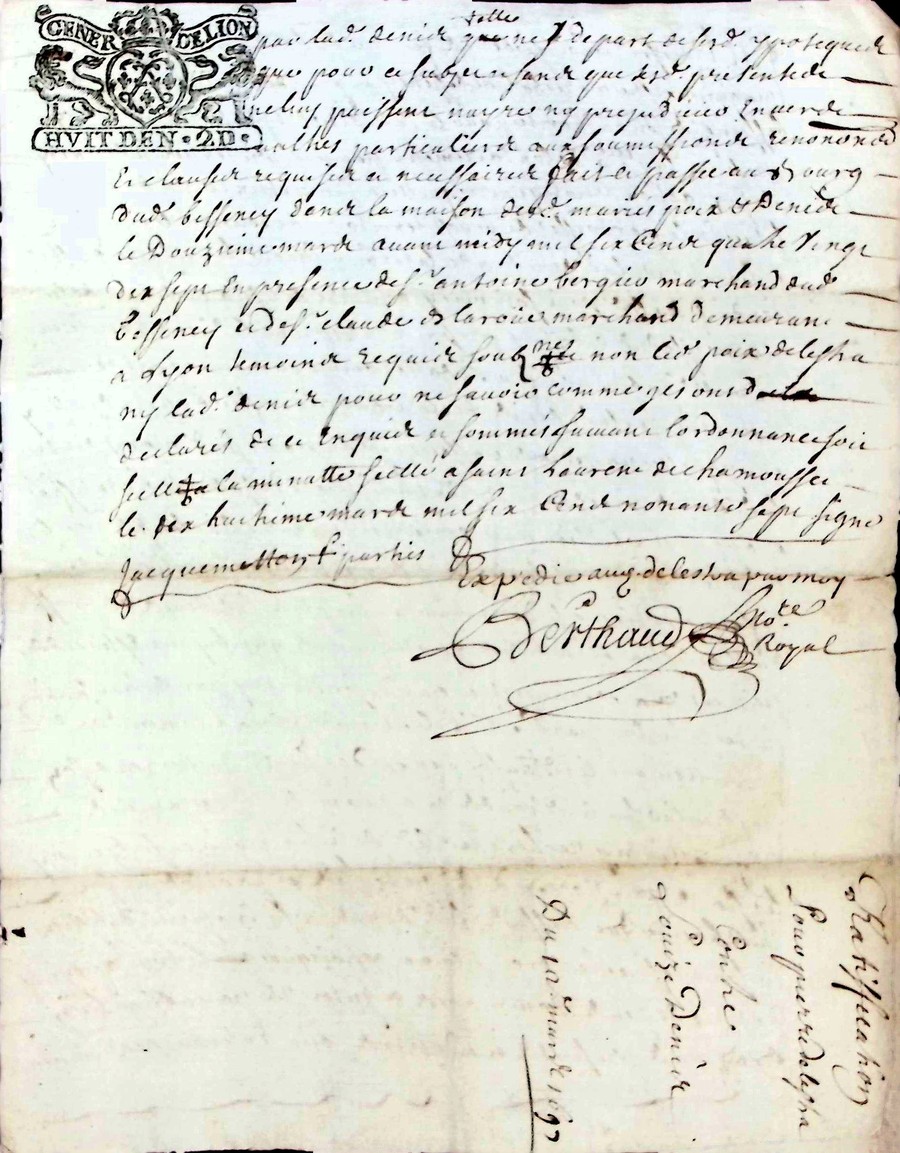 GENER DELION
HVIT DEN · 2D ·
telle
par lad. que de part desd. ypotequer
que pour ce subject que lesd. presente
ne luy puissent nuyre ny prejudicier
particuliere aux soumissions renon
Et clauses requises et necessaires fait et passé au Bourg
dud. besseney dans la maison desd. mariés poix et Denis
le Douzieme mars avant midy mil six Cens quatre vingt
dix sept En presence de sr. antoine bergier marchand dud.
besseney et de sr. claude de marchand demeurant
a Lyon temoins requis soub nés non led. poix delestra
ny lad. denis pour ne savoir comme ils ont
declarés de ce Enquis et sommés suivant lordonnance soit
scellé a la minutte scellé a saint Laurent de chamousset
le dix huitieme mars mil six Cens nonante sept signe
Jacquemetton pr. parties
Expedie aud. delestra par moy
Berthaud No.re
Royal
Ratiffication
Pour pierre delestra
Contre
Louize Denis
Du 12 mars 1697